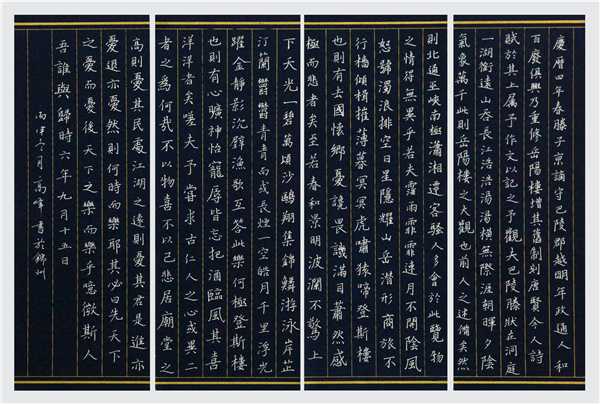 慶曆四年春滕子京謫守巴陵郡越明年政通人和
百廢俱興乃重修岳陽樓增其舊制刻唐賢今人詩
賦於其上屬予作文以記之予觀夫巴陵勝狀在洞庭
一湖銜遠山吞長江浩浩湯湯橫無際涯朝暉夕陰
氣象萬千此則岳陽樓之大觀也前人之述備矣然
則北通巫峽南極瀟湘遷客騷人多會於此覽物
之情得無異乎若夫霪雨霏霏連月不開陰風
怒號濁浪排空日星隱耀山岳潛形商旅不
行檣傾楫摧薄暮冥冥虎嘯猿啼登斯樓
也則有去國懷鄉憂讒畏譏滿目蕭然感
極而悲者矣至若春和景明波瀾不驚上
下天光一碧萬頃沙鷗翔集錦鱗游泳岸芷
汀蘭鬱鬱青青而或長煙一空皓月千里浮光
躍金靜影沉璧漁歌互答此樂何極登斯樓
也則有心曠神怡寵辱皆忘把酒臨風其喜
洋洋者矣嗟夫予嘗求古仁人之心或異二
者之為何哉不以物喜不以己悲居廟堂之
高則憂其民處江湖之遠則憂其君是進亦
憂退亦憂然則何時而樂耶其必曰先天下
之憂而憂後天下之樂而樂乎噫微斯人
吾誰與歸時六年九月十五日
丙申冬月高峰書於錦州